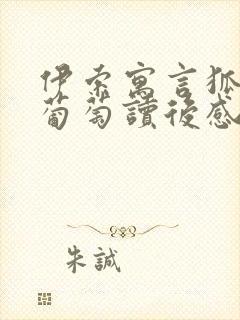 伊索寓言狐
葡萄讀後感
朱誠